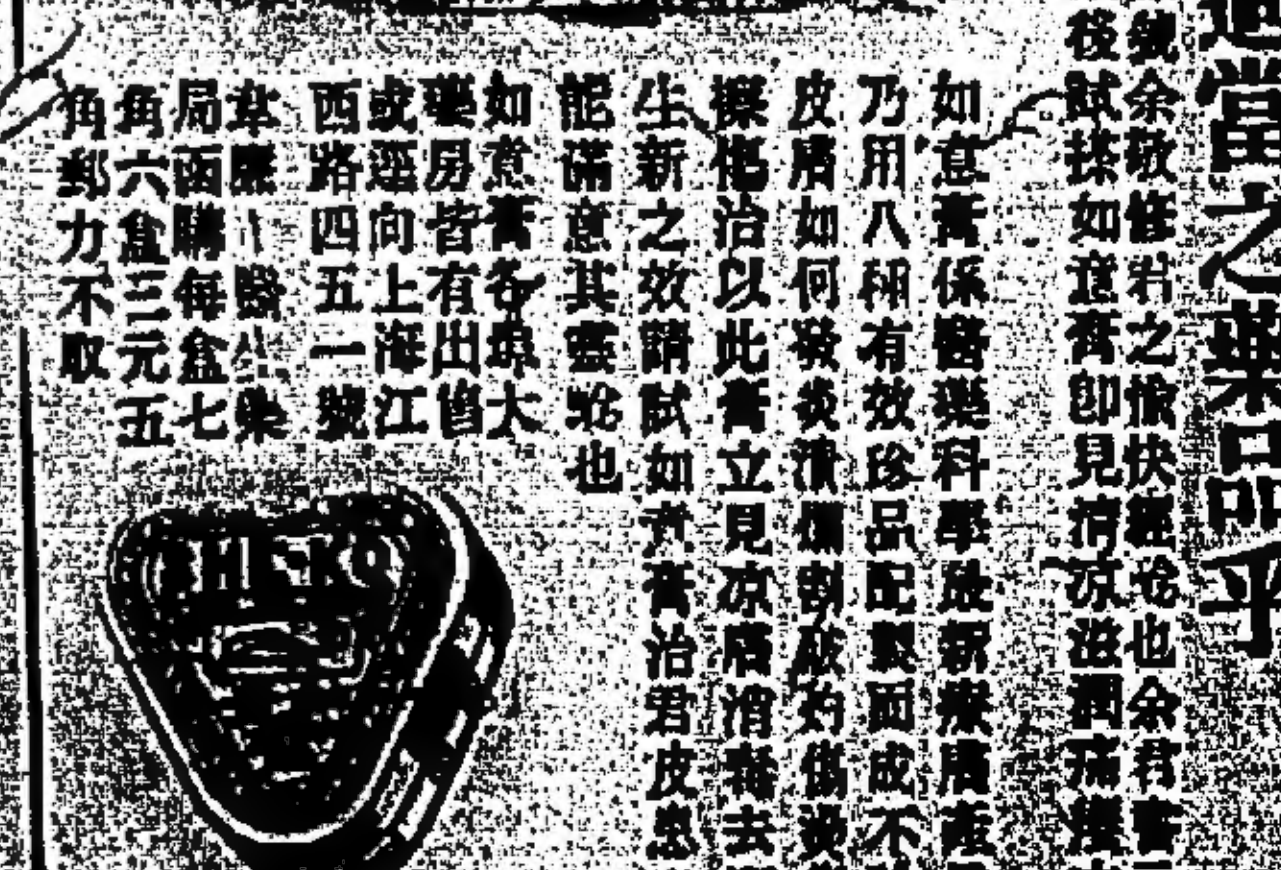 適當之藥品乎
號余敬修君之愉快經驗也余君書
後試搽如意膏卽見清涼滋潤痛癢
如意膏係醫藥科學最新療膚
乃用八種有效珍品配製而成不
皮膚如何發炎潰爛割破灼傷燙
擦傷治以此膏立見涼膚消毒去
生新之效請試如意膏治君皮患
能滿意其靈驗也
如意膏各埠大
藥房皆有出售
或逕向上海江
西路四五一號
韋廉士醫生藥
局函購每盒七
角六盒三元五
角郵力不取